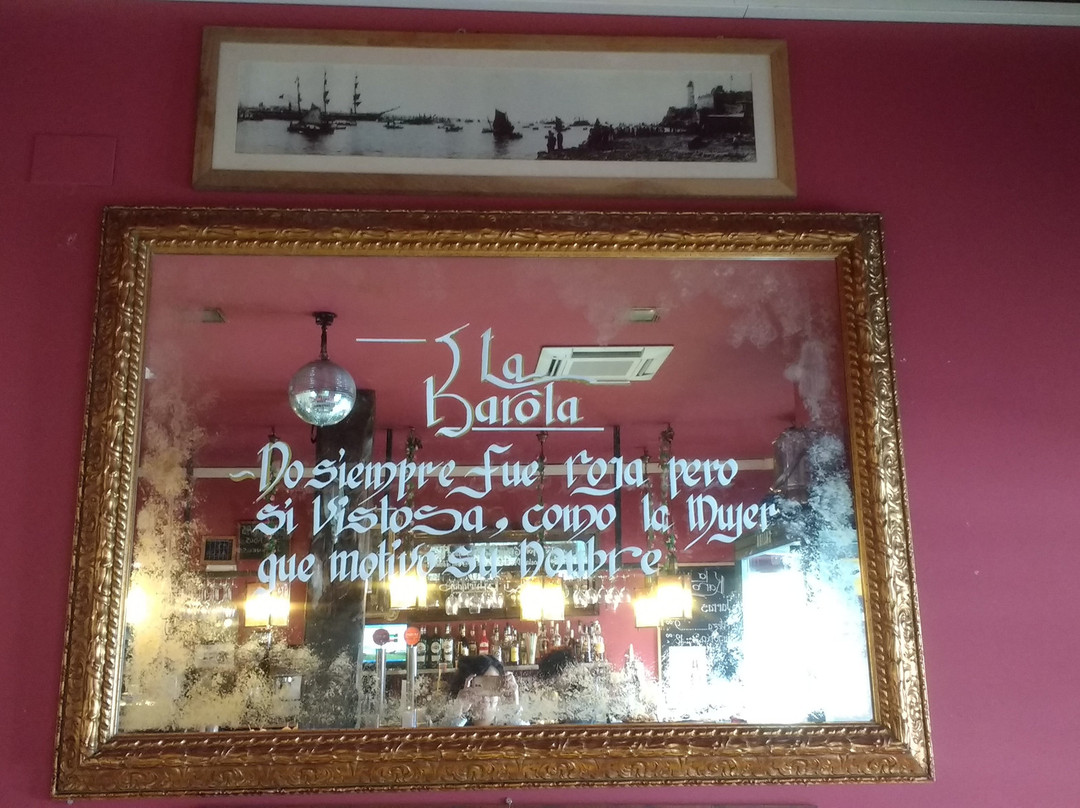 La
Barola
No siempre fue roja pero
si Vistosa, como la Mujer
que motivo su Nombre